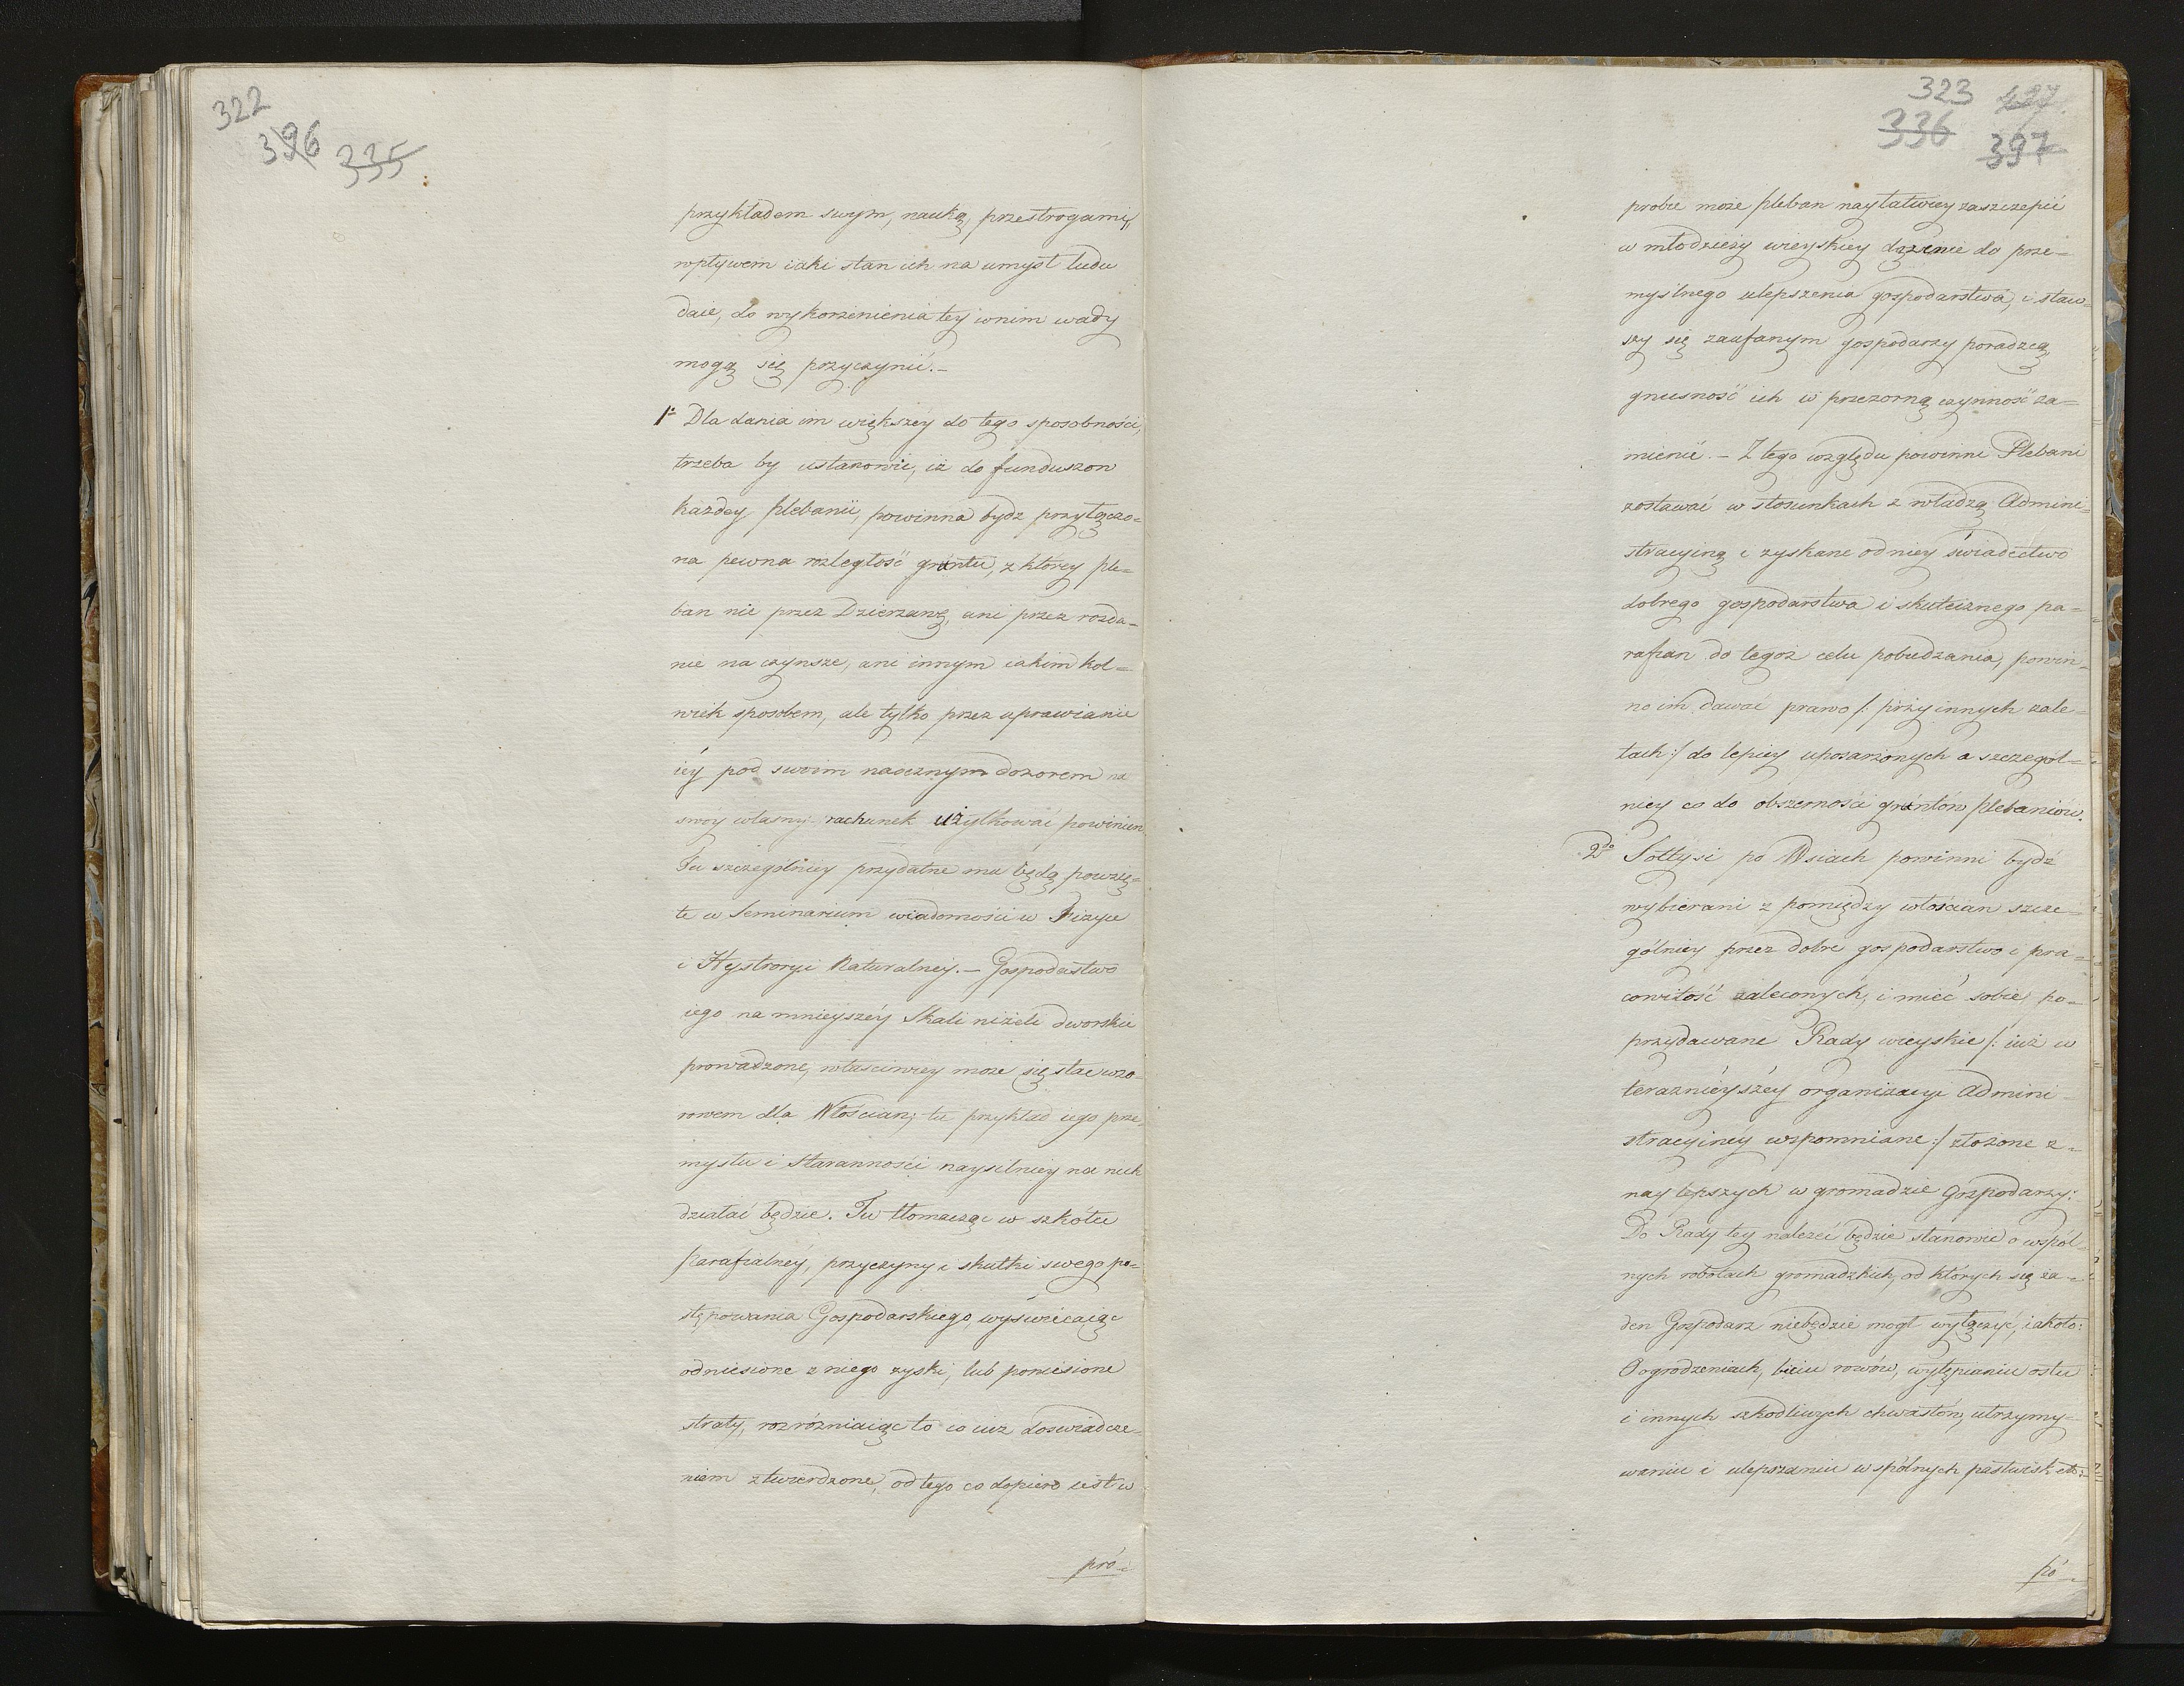 322
396 335
przykładem swym, nauką, przestrogami,
wpływem iaki stan ich na umysł ludu
daie, do wykorzenienia tey w nim wady
mogą się przyczynić.-
1º Dla dania im większéy do tego sposobności,
trzeba by ustanowić, iż do funduszow
każdey plebanii, powinna bydz przyłączo=
na pewna rozległość gruntu, z którey ple=
ban nie przez Dzierzawę, ani przez rozda=
nie na czynsze, ani innym iakim kol=
wiek sposobem, ale tylko przez uprawianie
iéy pod swoim naocznym dozorem na
swóy własny rachunek użytkować powinien.
Tu szczególniey przydatne mu będą powzię=
te w Seminarium wiadomości w Fizyce
i Hystroryi Naturalnéy.- Gospodastwo
iego na mnieyszéy Skali niżeli dworskie
prowadzone, właściwiey może się stać wzo=
rowem dla Włościan; tu przykład iego prze=
mysłu i Staranności naysilniéy na nich
działać będzie. Tu tłomacząc w szkółce
Parafialnéy, przyczyny i skutki swego po=
stępowania Gospodarskiego, wyświecaiąc
odniesione z niego zyski, lub poniesione
straty, rozróżniaiąc to co iuż doświadcze=
niem ztwierdzone, od tego co dopiero iest w
pró=
323
336 397
probie może pleban nayłatwiey zaszczepić
w młodzieży wieyskiey dążenie do prze=
myślnego ulepszenia gospodarstwa, i staw=
szy się zaufanym gospodarzy poradzcą,
gnusność ich w przezorną czynność za=
mienić.- Z tego względu powinni Plebani
zostawać w stosunkach z władzą Admini=
stracyiną i zyskane od niey świadectwo
dobrego gospodarstwa i skutecznego pa=
rafian do tegoż celu pobudzania, powin=
no im dawać prawo /: przy innych zale=
tach :/ do lepiey uposażonych a szczegól=
niey co do obszerności gruntów plebaniów.
2do Sołtysi po Wsiach powinni bydź
wybierani z pomiędzy włościan szcze=
gólniey przez dobre gospodarstwo i pra=
cowitość zaleconych, i mieć sobie po=
przydawane Rady wieyskie /: iuż w
teraznieyszéy organizacyi Admini=
stracyinéy wspomniane :/ złożone z=
naylepszych w gromadzie Gospodarzy:
Do Rady tey należeć będzie stanowić o wspól=
nych robotach gromadzkich, od których się ża=
den Gospodarz niebędzie mogł wyłączyć, iakoto:
O ogrodzeniach, biciu rowów, wytępianiu ostu
i innych szkodliwych chwastów, utrzymy=
waniu i ulepszaniu wspólnych pastwisk etc:
po=